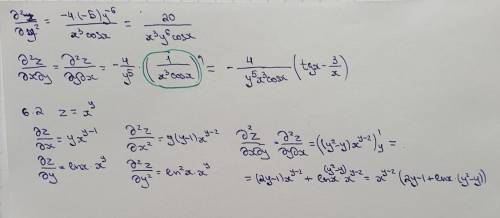 ∂²z/∂y² = -4·(-5)y⁻⁶/x³cosx = 20/x³y⁶cosx
∂²z/∂x∂y = ∂²z/∂y∂x = -4/y⁵ · (1/x³cosx)' = -4/y⁵x³cosx (tgx - 3/x)
6.2 z = x^y
∂z/∂x = yx^(y-1) ∂²z/∂x² = y(y-1)x^(y-2) ∂²z/∂x∂y = ∂²z/∂y∂x = ((y²-y)x^(y-2))'y =
∂z/∂y = lnx·x^y ∂²z/∂y² = ln²x·x^y = (2y-1)x^(y-2) + lnx·(y²-y)x^(y-2) = x^(y-2)(2y-1+lnx·(y²-y))